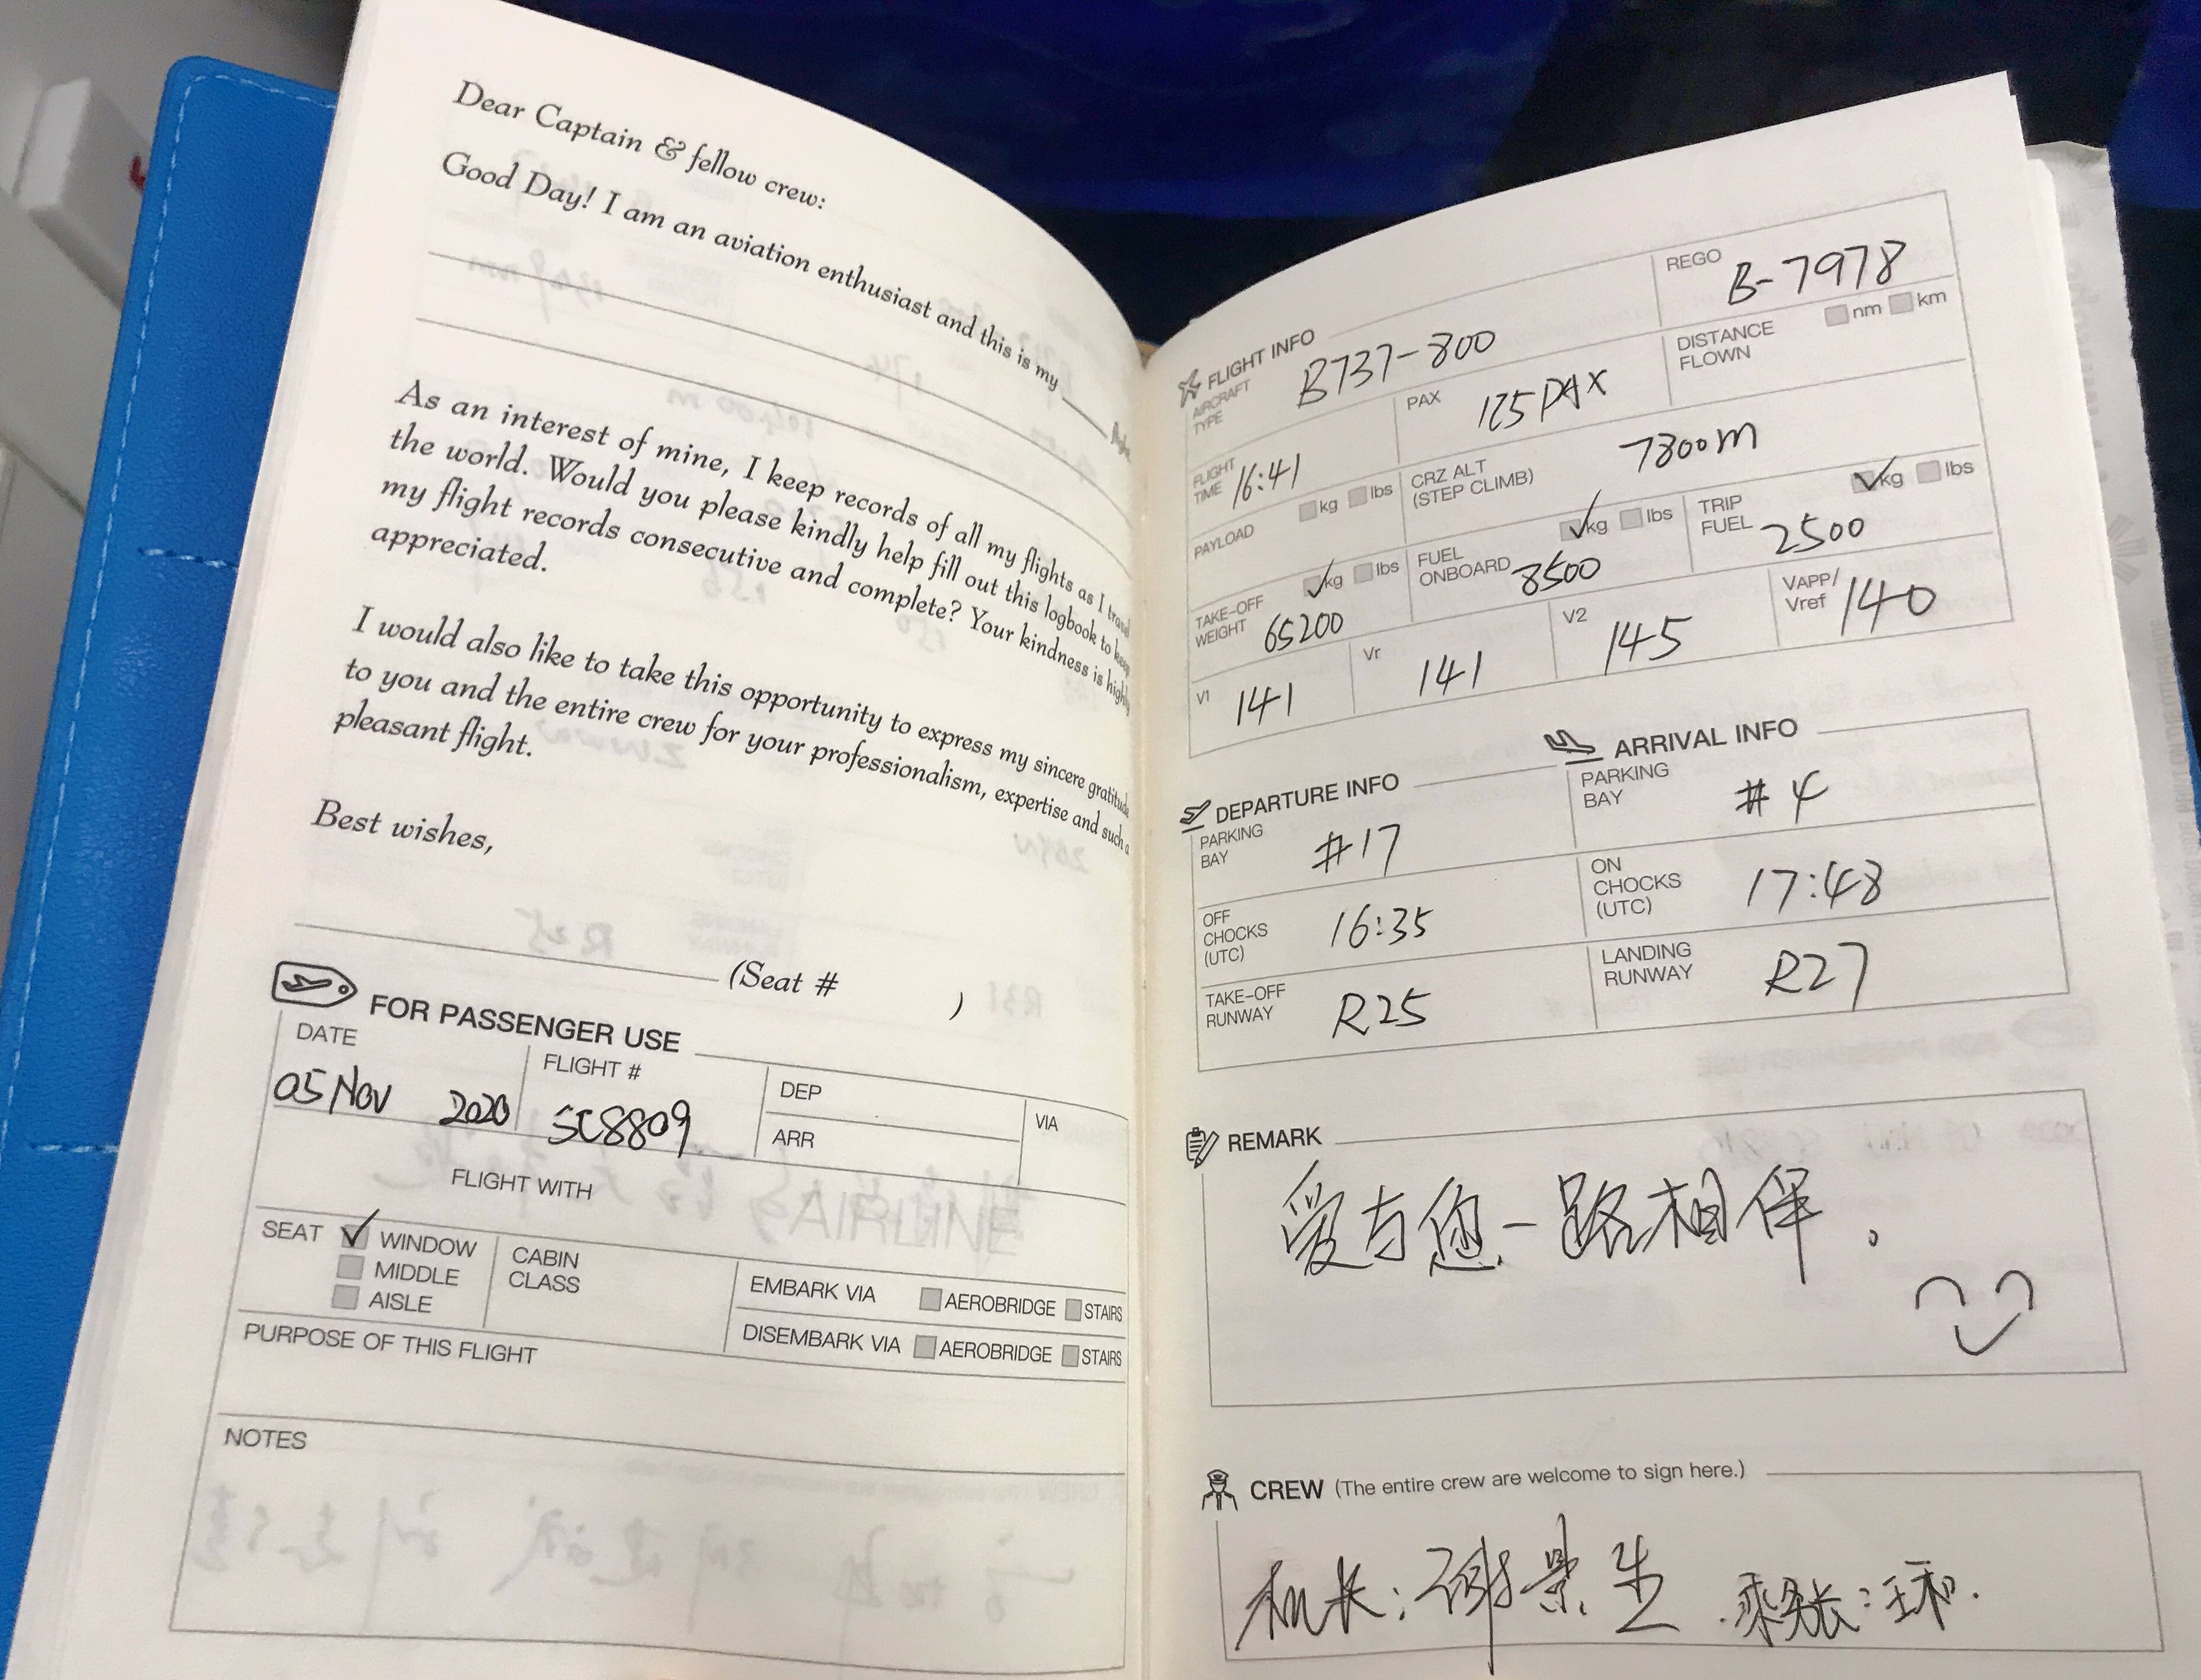 Dear Captain & fellow crew:
Good Day! I am an aviation enthusiast and this is my
As an interest of mine, I keep records of all my flights as I travel
the world. Would you please kindly help fill out this logbook to keep
my flight records consecutive and complete? Your kindness is highly
appreciated.
I would also like to take this opportunity to express my sincere gratitude
to you and the entire crew for your professionalism, expertise and such a
pleasant flight.
Best wishes,
(Seat # )
FOR PASSENGER USE
DATE
05 Nov 2020
FLIGHT #
SC8809
DEP
ARR
VIA
FLIGHT WITH
SEAT
WINDOW
MIDDLE
AISLE
CABIN
CLASS
EMBARK VIA AEROBRIDGE STAIRS
DISEMBARK VIA AEROBRIDGE STAIRS
PURPOSE OF THIS FLIGHT
NOTES
FLIGHT INFO
AIRCRAFT
TYPE
B737-800
REGO
B-7978
FLIGHT
TIME
16:41
PAX
125 PAX
DISTANCE
FLOWN
nm km
PAYLOAD
kg lbs
CRZ ALT
(STEP CLIMB)
7800m
TAKE-OFF
WEIGHT
kg lbs
65200
FUEL
ONBOARD
kg lbs
8500
TRIP
FUEL
kg lbs
2500
V1
141
Vr
141
V2
145
VAPP/
Vref
140
DEPARTURE INFO
PARKING
BAY
#17
OFF
CHOCKS
(UTC)
16:35
TAKE-OFF
RUNWAY
R25
ARRIVAL INFO
PARKING
BAY
#4
ON
CHOCKS
(UTC)
17:48
LANDING
RUNWAY
R27
REMARK
爱与您一路相伴。
CREW (The entire crew are welcome to sign here.)
机长：谢景生 乘务长：王和.